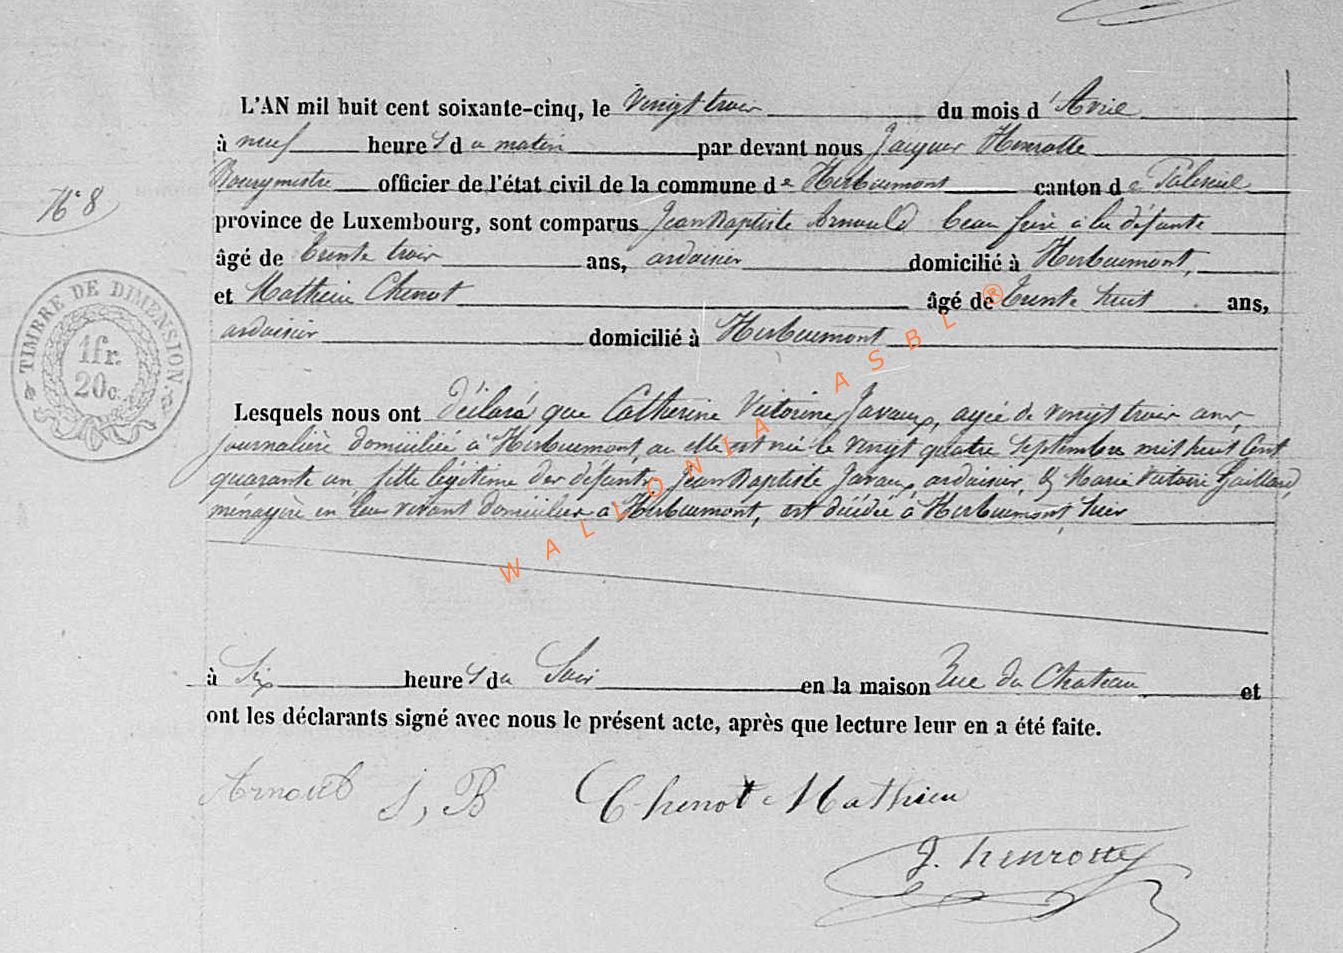 L'AN mil huit cent soixante-cinq, le vingt trois du mois d'Avril
à neuf heures du matin par devant nous Jacques Henrotte
Bourgmestre officier de l'état civil de la commune de Herbeumont canton de Paliseul
N° 8
province de Luxembourg, sont comparus Jean Baptiste Arnould beau frère à la défunte
âgé de trente trois ans, ardoisier domicilié à Herbeumont,
et Mathieu Chenot âgé de trente huit ans,
ardoisier domicilié à Herbeumont
TIMBRE DE DIMENSION.
1 fr.
20c.
Lesquels nous ont déclaré que Catherine Victorine Javaux, agée de vingt trois ans,
journalière domiciliée à Herbeumont, où elle est née le vingt quatre Septembre mil huit cent
quarante un, fille légitime des défunts Jean Baptiste Javaux ardoisier, & Marie Victoire Gaillard,
ménagère en leur vivant domiciliés à Herbeumont, est décédée à Herbeumont, hier
à Six heures du Soir en la maison Rue du Chateau et
ont les déclarants signé avec nous le présent acte, après que lecture leur en a été faite.
Arnould J, B Chenot Mathieu
J. henrotte
WALLONIA ASBL ®